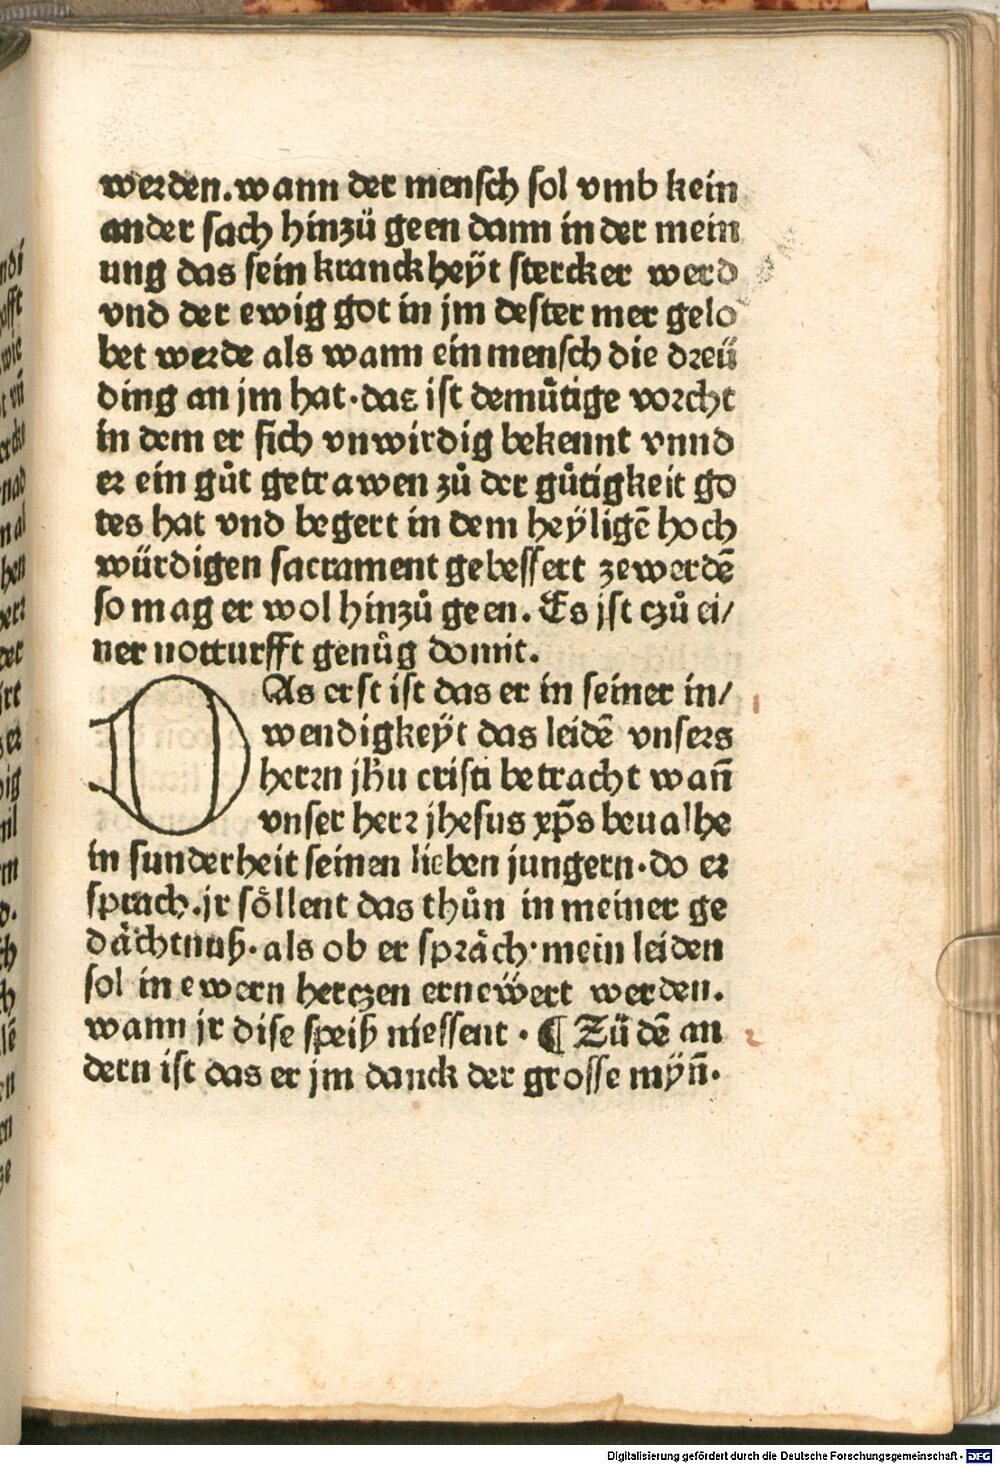 werden. wann der mensch sol vmb kein
ander sach hinzü geen dann in der mein
ung das sein kranckheÿt stercker werd
vnd der ewig got in jm dester mer gelo
bet werde als wann ein mensch die dreü
ding an jm hat. das ist demuͤtige vorcht
in dem er sich vnwirdig bekennt vnnd
er ein guͦt getrawen zuͦ der guͤtigkeit go
tes hat vnd begert in dem heÿligē hoch
würdigen sacrament gebessert zewerdē
so mag er wol hinzuͦ geen. Es jst czuͦ ei/
ner notturfft genuͦg domit.
DAs erst ist das er in seiner in/
wendigkeÿt das leidē vnsers
herrn jhu̅ cristi betracht wan̄
vnser herr jhesus xp̄s beualhe
in sunderheit seinen lieben jungern. do er
sprach. jr soͤllent das thuͦn in meiner ge
daͤchtnuß. als ob er spraͤch. mein leiden
sol in ewern herczen erneẅert werden.
wann jr dise speiß niessent. ¶ Zü dē an
dern ist das er jm danck der grosse mÿn̄.
Digitalisierung gefördert durch die Deutsche Forschungsgemeinschaft - DFG